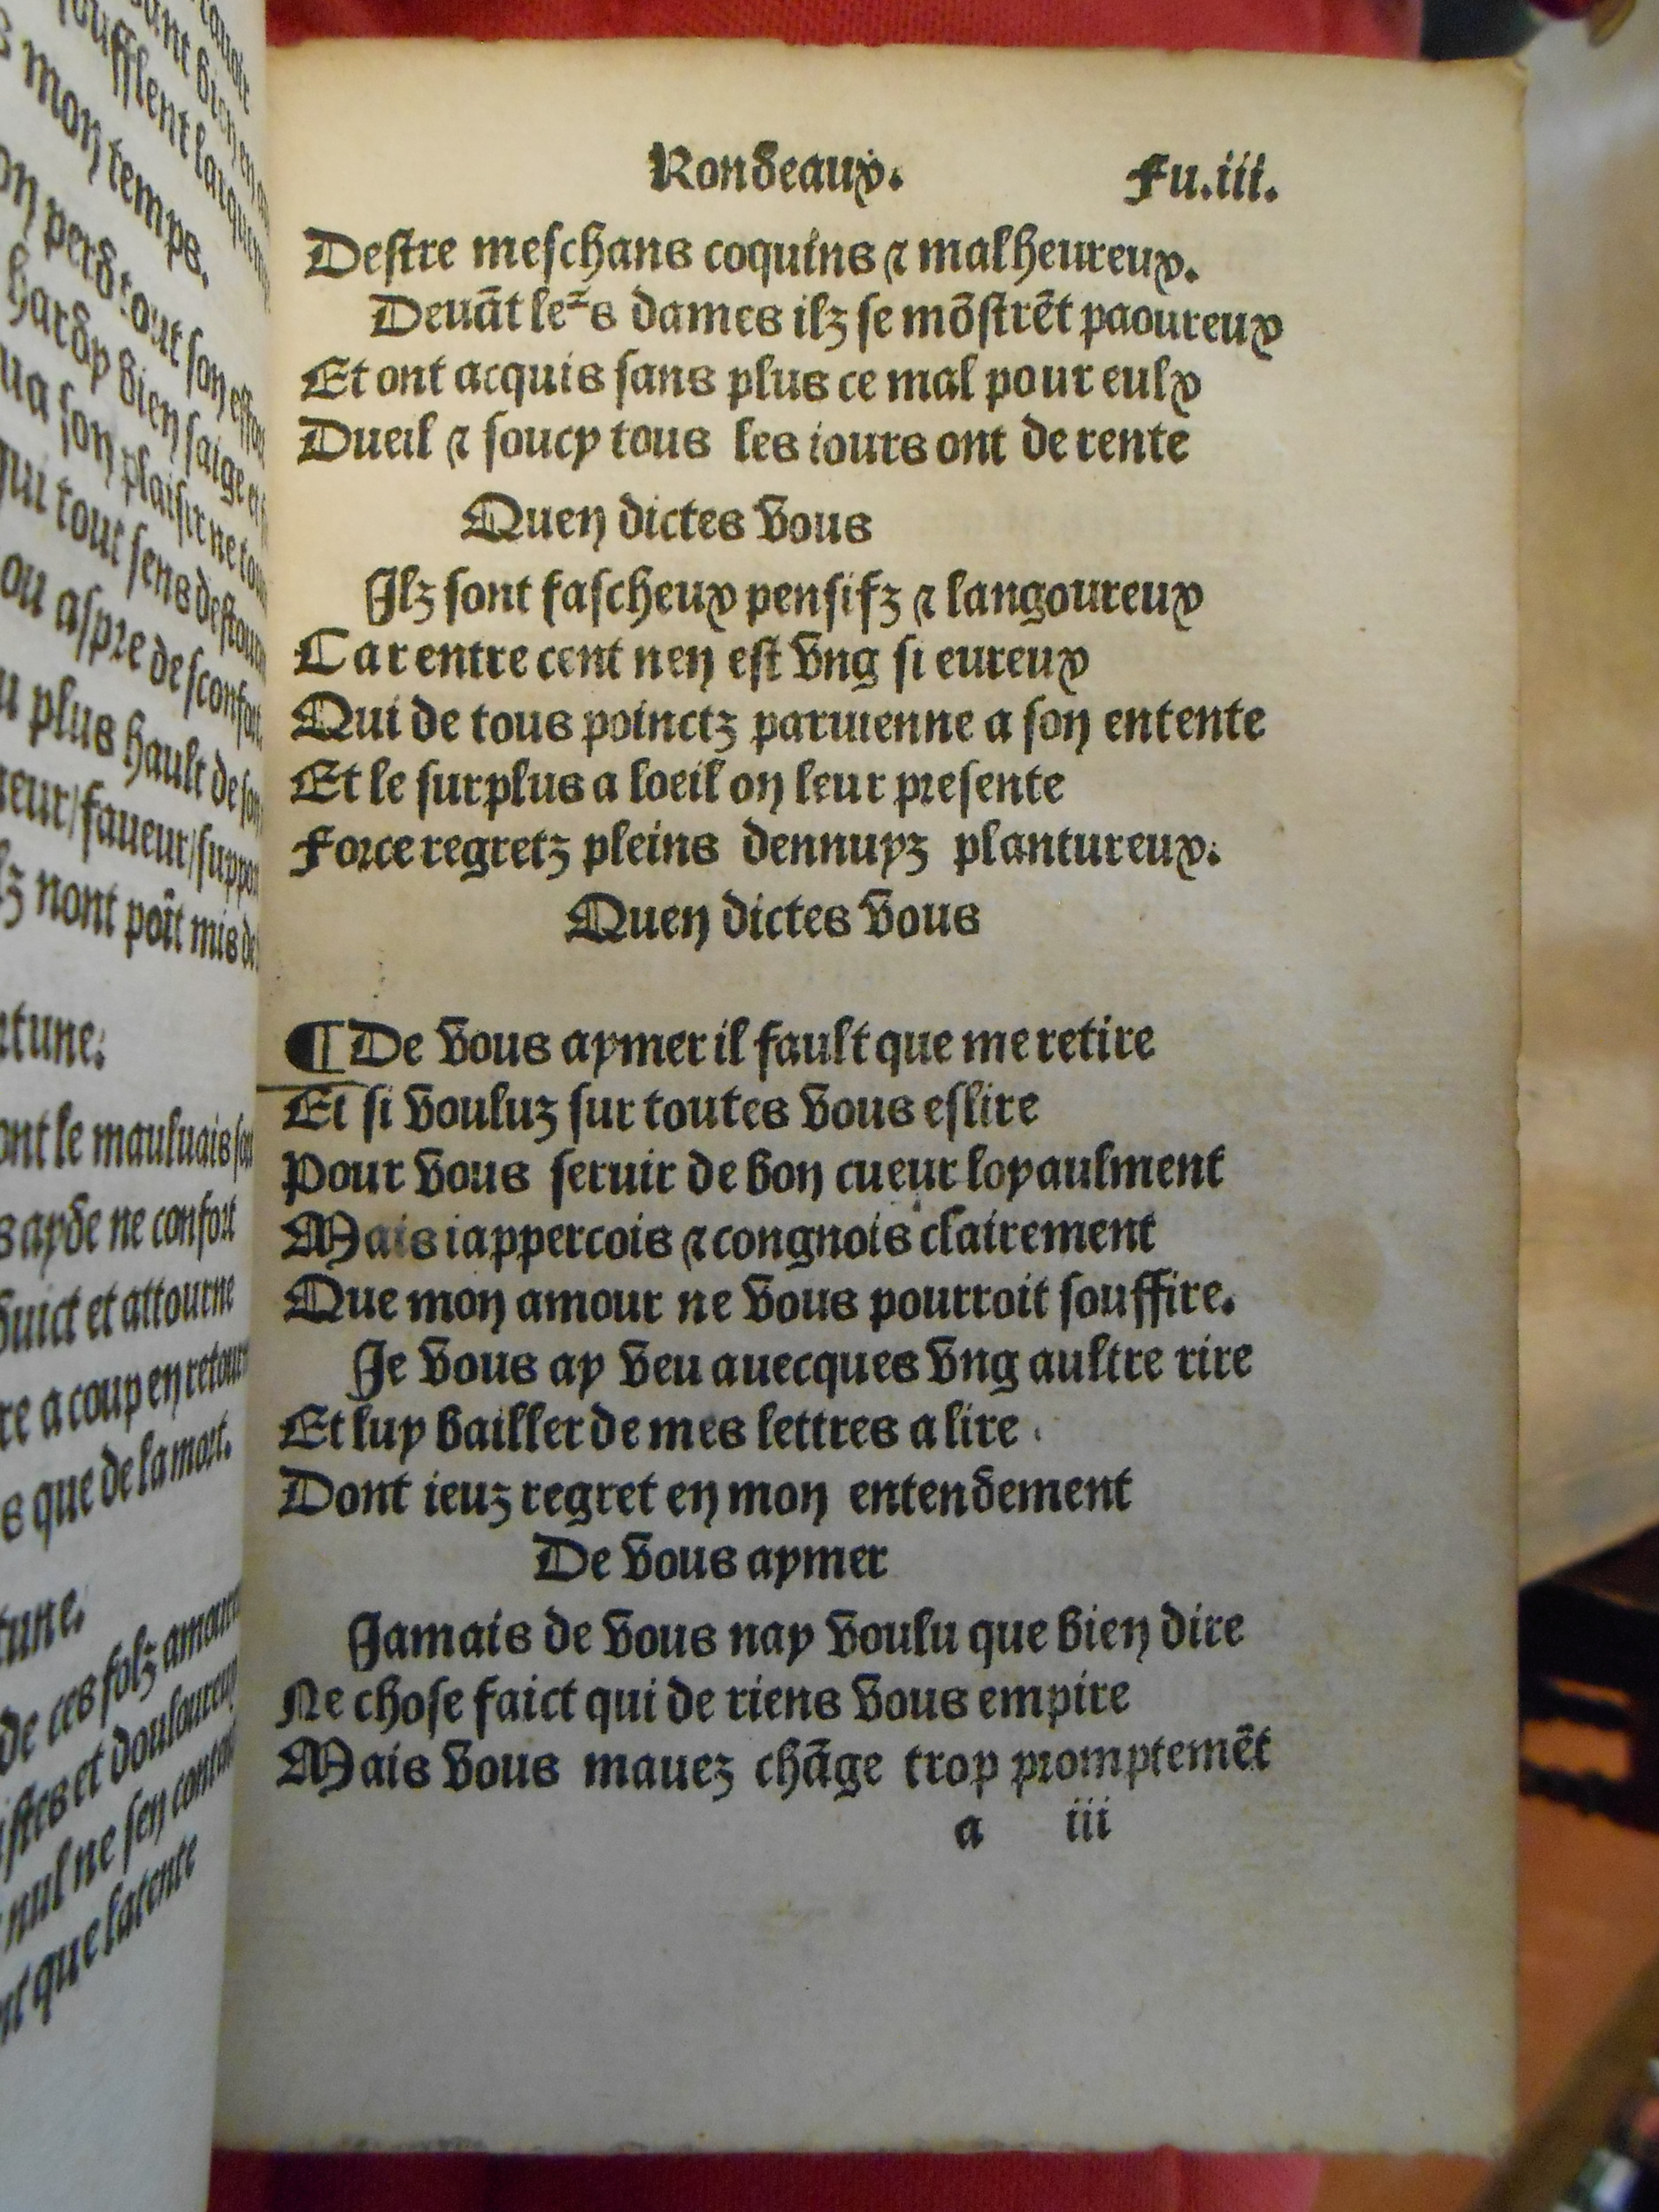 auoit
ant bien en
soufflent
mon temps.
on perd tout son
hardy bien saige
ua son plaisir ne
qui tout sens
ou aspre desconfort
plus hault de
eur/faueur/
lz nont poît mis
rtune.
ont le mauluais
s ayde ne confort
et attourne
re a coup en retourn
s que de la mort.
tune.
de ces folz amour
istes et douloureux
nul ne sen
nt que latente
Rondeaux. Fu.iii.
Destre meschans coquins ⁊ malheureux.
Deuãt leᷣs dames ilz se mõstrẽt paoureux
Et ont acquis sans plus ce mal pour eulx
Dueil ⁊ soucy tous les iours ont de rente
Quen dictes vous
Ilz sont fascheux pensifz ⁊ langoureux
Car entre cent nen est vng si eureux
Qui de tous poinctz paruienne a son entente
Et le surplus a loeil on leur presente
Force regretz pleins dennuyz plantureux.
Quen dictes vous
¶ De vous aymer il fault que me retire
Et si vouluz sur toutes vous eslire
Pour vous seruir de bon cueur loyaulment
Mais iappercois ⁊ congnois clairement
Que mon amour ne vous pourroit souffire.
Je vous ay veu auecques vng aultre rire
Et luy bailler de mes lettres a lire
Dont ieuz regret en mon entendement
De vous aymer
Jamais de vous nay voulu que bien dire
Ne chose faict qui de riens vous empire
Mais vous mauez chãge trop promptemẽt
a iii